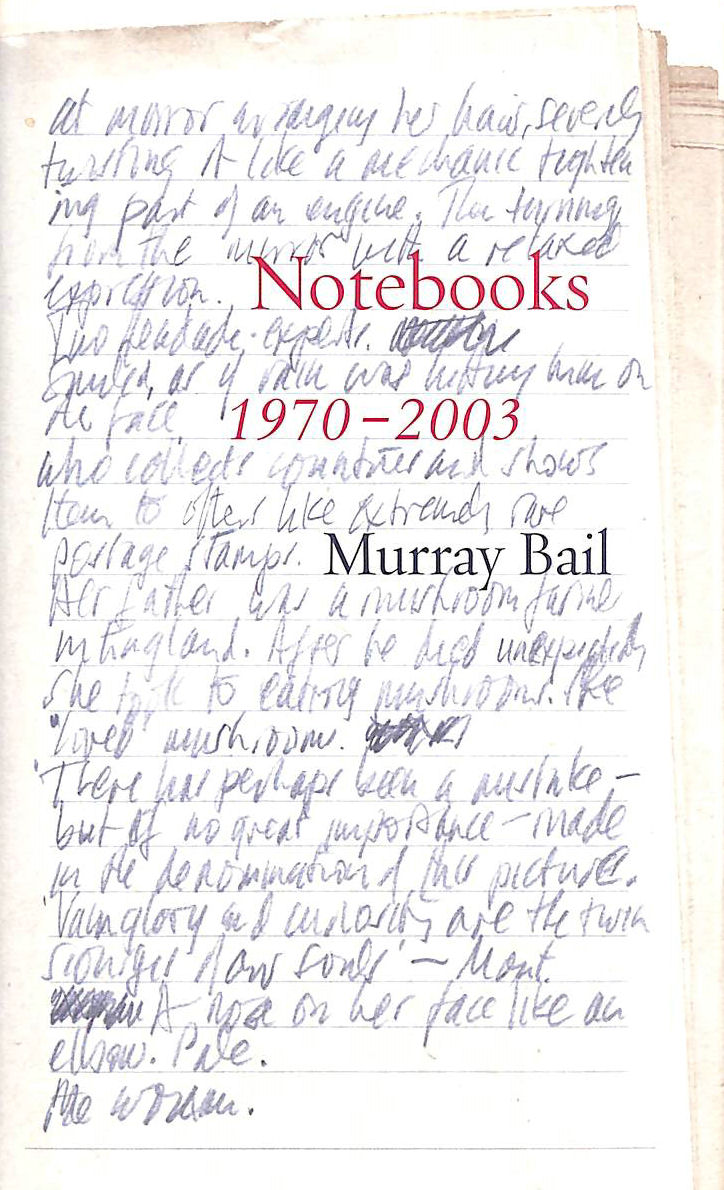 at mirror arranging her hair, severely
twisting it like a mechanic tighten
ing part of an engine. Then turning
from the mirror with a relaxed
expression.
Notebooks
Two headache experts.
Smiled, as if rain was hitting him on
the face
1970–2003
who collects countries and shows
them to others like extremely rare
postage stamps.
Murray Bail
Her father was a mushroom farmer
in England. After he died unexpectedly
she took to eating mushrooms. She
'loved' mushrooms.
'There has perhaps been a mistake –
but of no great importance – made
in the denomination of this picture.
'Vainglory and curiosity are the twin
scourges of our souls' – Mont.
A nose on her face like an
elbow. Pale.
The woman.